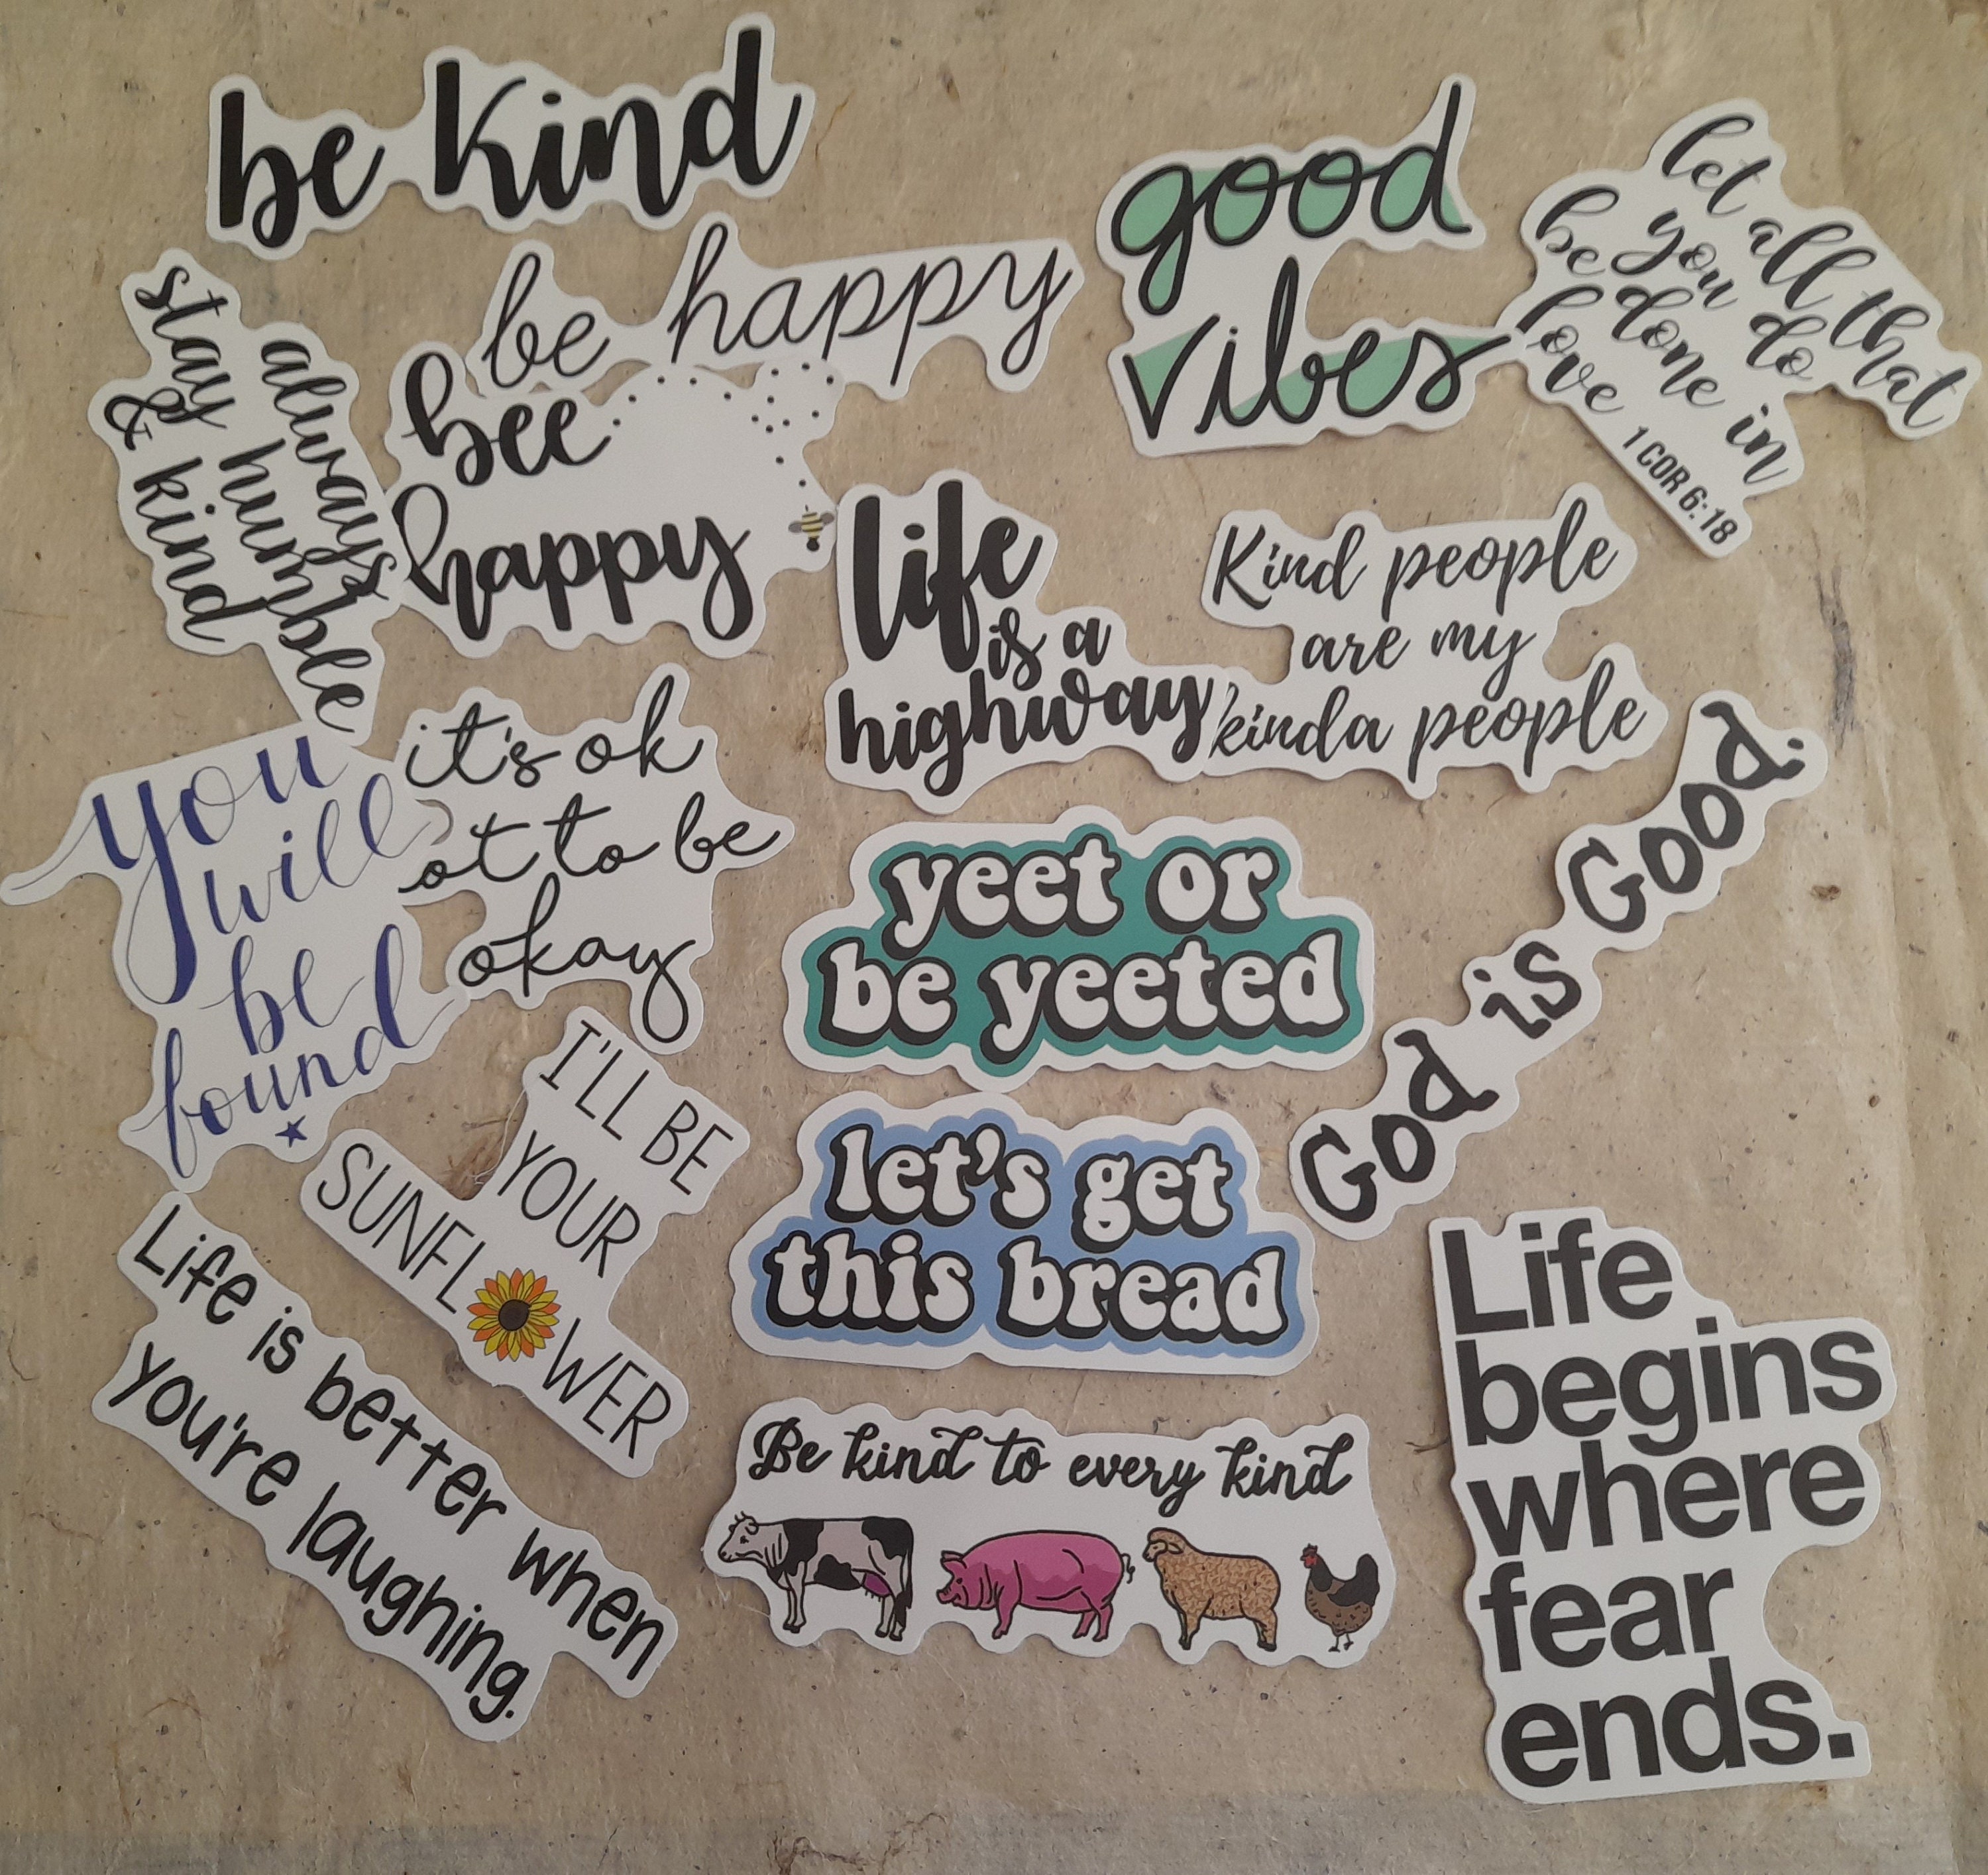 be kind
be happy
good
vibes
let all that
you do
be done in
love
1 COR 6:18
always
stay humble
& kind
bee
happy
life
is a
highway
Kind people
are my
kinda people
you
will
be
found
it's ok
ot to be
okay
yeet or
be yeeted
God is Good.
I'LL BE
YOUR
SUNFL WER
let's get
this bread
Life is better when
you're laughing.
Be kind to every kind
Life
begins
where
fear
ends.